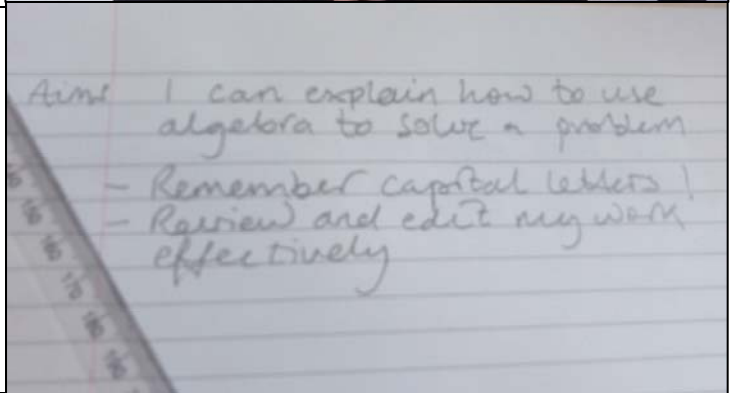 Aim: I can explain how to use
algebra to solve a problem
- Remember capital letters!
- Review and edit my work
effectively
150
160
170
180
190